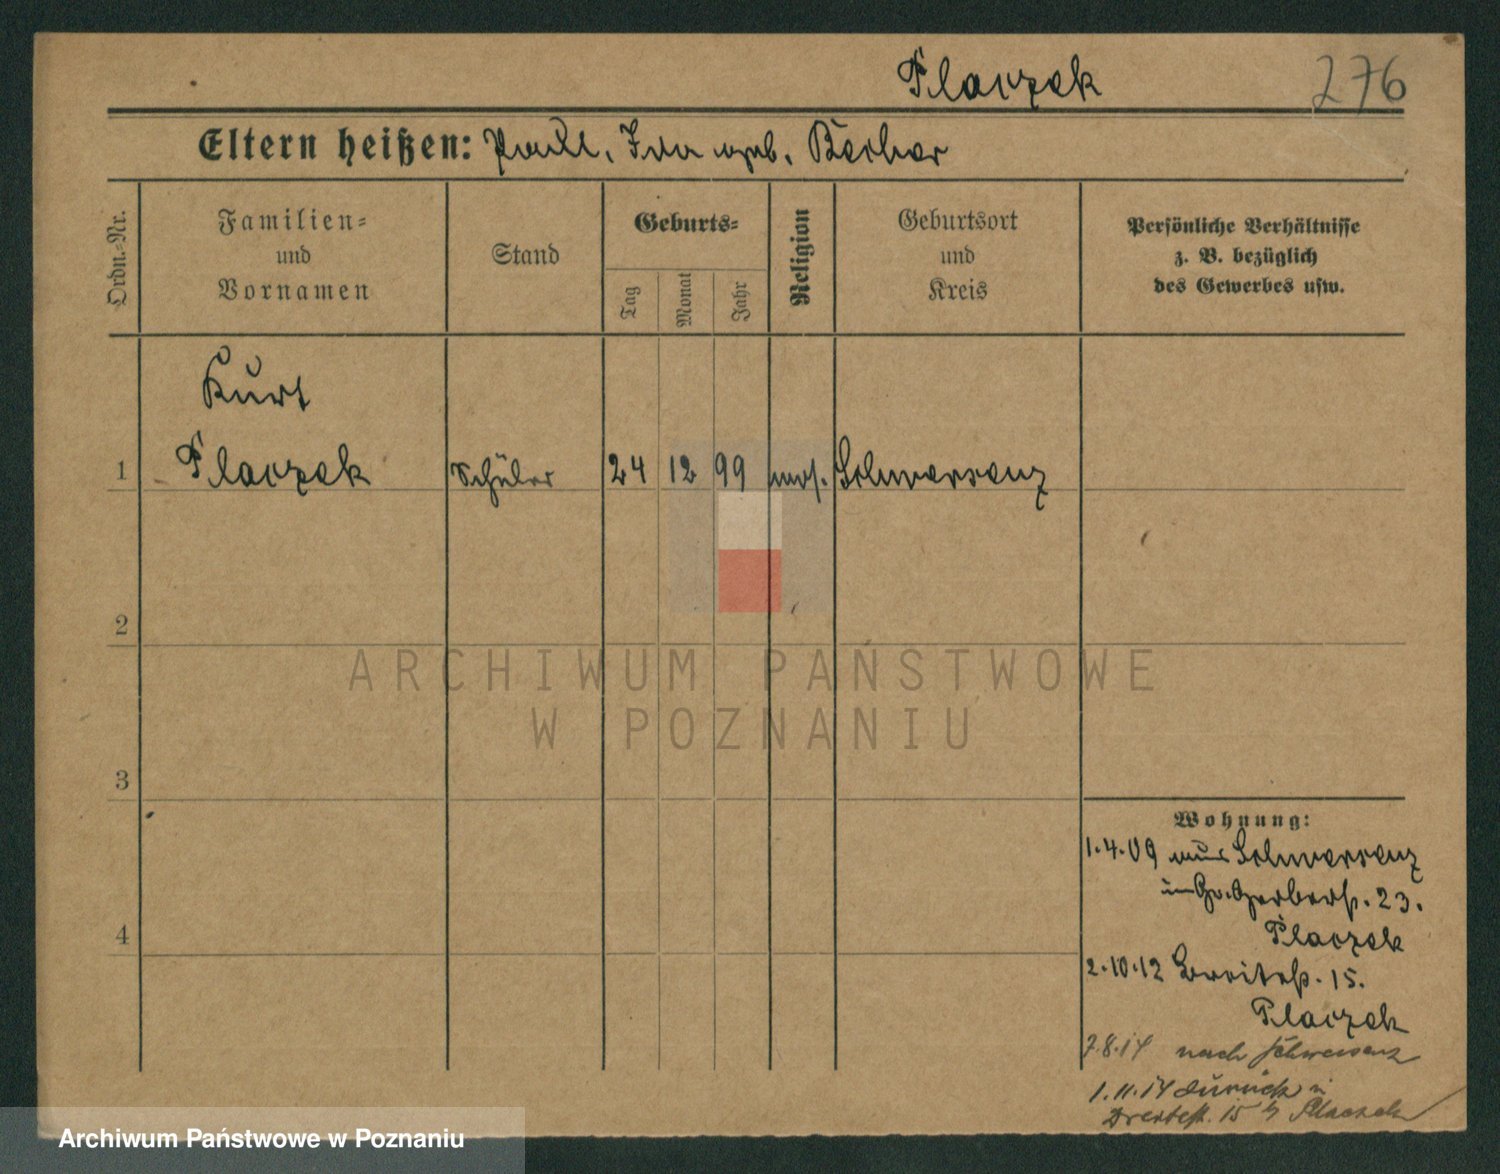 Placzek 276
Eltern heißen: Paul, Ida geb. Becher
Ordn.-Nr.
Familien-
und
Vornamen
Stand
Geburts-
Tag
Monat
Jahr
Religion
Geburtsort
und
Kreis
Persönliche Verhältnisse
z. B. bezüglich
des Gewerbes usw.
Kurt
1 Placzek Schüler 24 12 99 mos. Schwersenz
2
ARCHIWUM PAŃSTWOWE
W POZNANIU
3
Wohnung:
1.4.09 aus Schwersenz
in Gr. Gerberst. 23.
Placzek
4
2.10.12 Breitest. 15.
Placzek
7.8.14 nach Schwersenz
1.11.14 zurück in
15 b Placzek
Archiwum Państwowe w Poznaniu